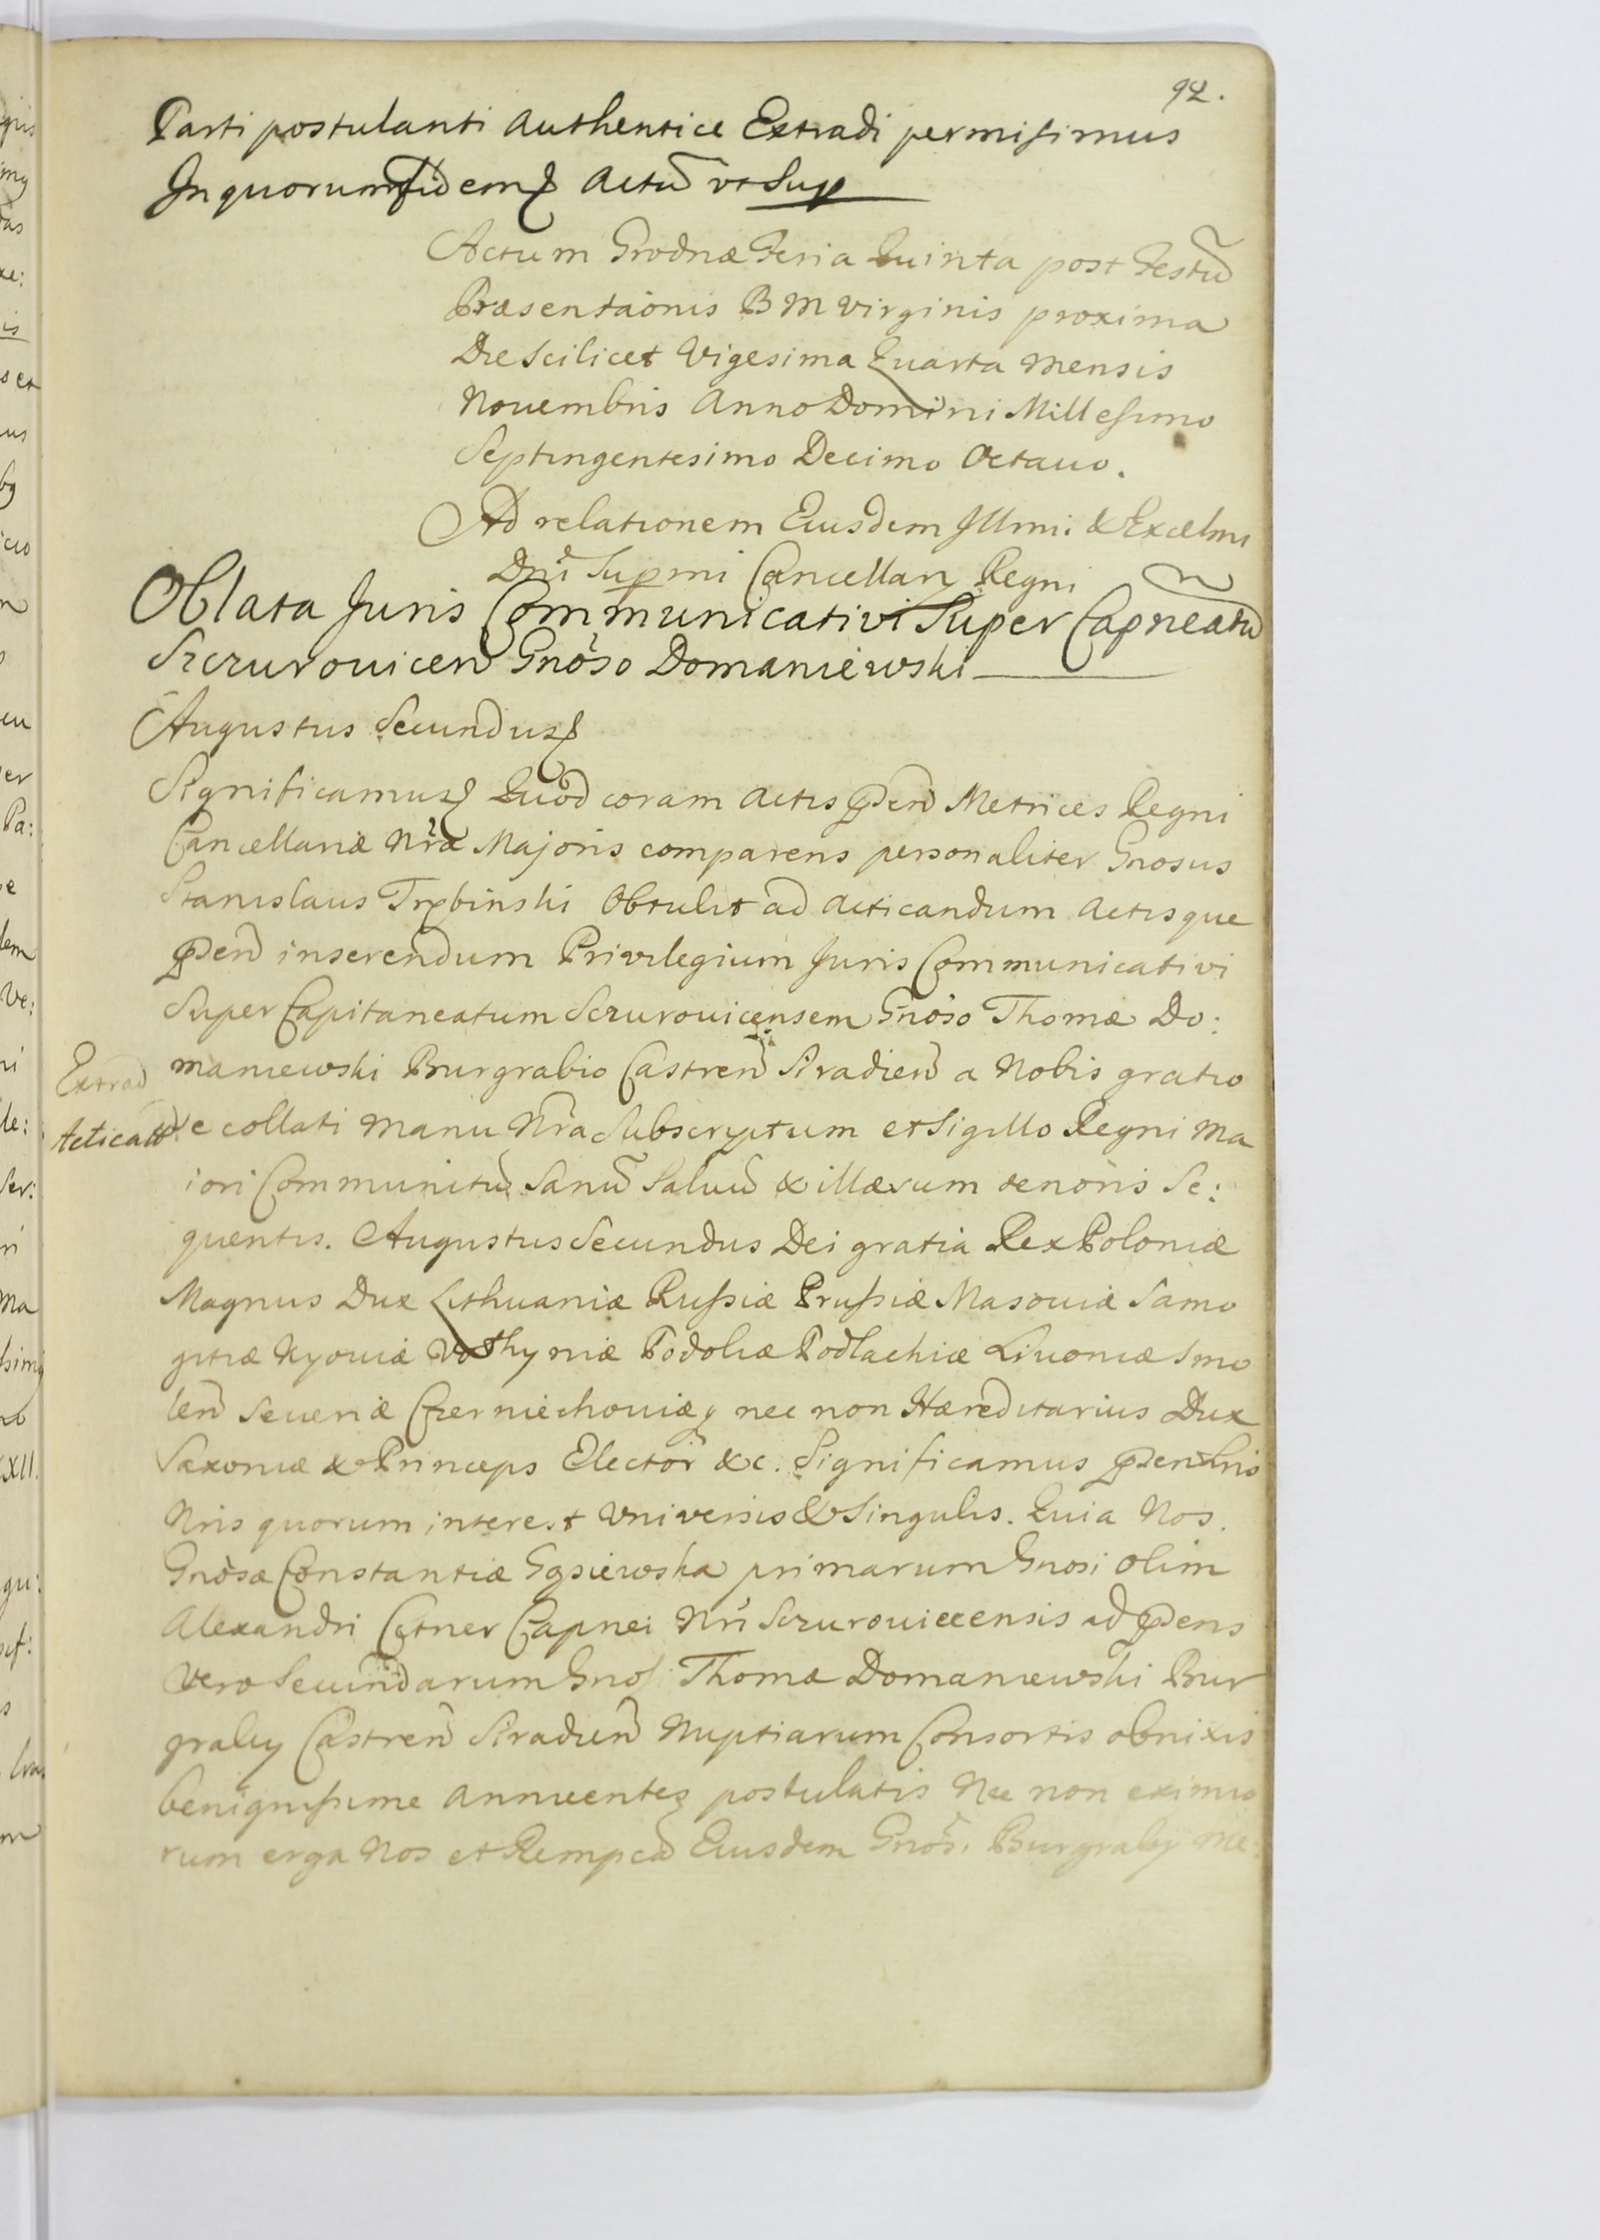 92.
Parti postulanti Authentice Extradi permisimus
In quorum fidem Actū vt Sup
Actum Grodnæ Feria Quinta post Festū
Præsentaõnis B M Virginis proxima
Die Scilicet Vigesima Quarta Mensis
Nouembris Anno Domini Millesimo
Septingentesimo Decimo Octauo.
Ad relationem Eiusdem Illmi. & Excellmi
Dñi Supmi Cancellarÿ Regni
Oblata Juris Communicativi Super Capneatū
Szczurouicen Gnoso Domaniewski
Augustus Secundus
Significamus Quod coram Actis pñden Metrices Regni
Cancellariæ Nræ Majoris comparens personaliter Gnosus
Stanislaus Trzbinski Obtulit ad Acticandum Actisque
pñden inserendum Privilegium Juris Communicativi
Super Capitaneatum Sczurouicensem Gnoso Thomæ Do:
maniewski Burgrabio Castren Siradien a Nobis gratio
Extrad
Acticat
se collati Manu Nra Subscryptum et Sigillo Regni Ma
iori Communitū Sanū Saluū & illæsum tenoris Se:
quentis. Augustus Secundus Dei gratia Rex Poloniæ
Magnus Dux Lithuaniæ Russiæ Prussiæ Masouiæ Samo
gitiæ Kyouiæ Volhyniæ Podoliæ Podlachiæ Liuoniæ Smo
len Seueriæ Czerniechouiæq nec non Hæreditarius Dux
Saxoniæ & Princeps Elector &c. Significamus pñdentibus
Nris quorum interest Vniversis & Singulis. Quia Nos.
Gnosæ Constantiæ Gąsiewska primarum Gnosi olim
Alexandri Cetner Capnei Nri Sczurouicensis ad pñdens
Vero Secundarum Gnosi Thomæ Domaniewski Bur
grabÿ Castren Siradien Nuptiarum Consortis obnixis
benignissime Annuentes postulatis Nec non eximio
rum erga Nos et Rempcā Eiusdem Gnosi Burgrabÿ Me: